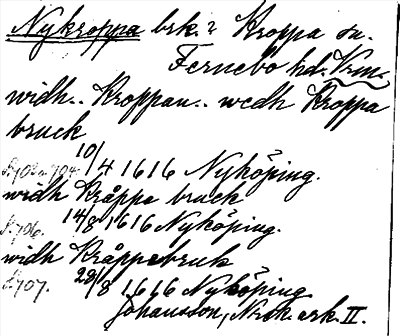 Nykroppa brk. i Kroppa sn.
Fernebo hd. Vrm.
widh.. Kroppan.. wedh Kroppa
bruck
10/4 1616 Nyköping.
S. 703 o. 704.
widh Kråppa bruck
14/8 1616 Nyköping.
S. 706.
widh Kråppebruk
28/8 1616 Nyköping
S. 707.
Johansson, Norsk. ark. II.